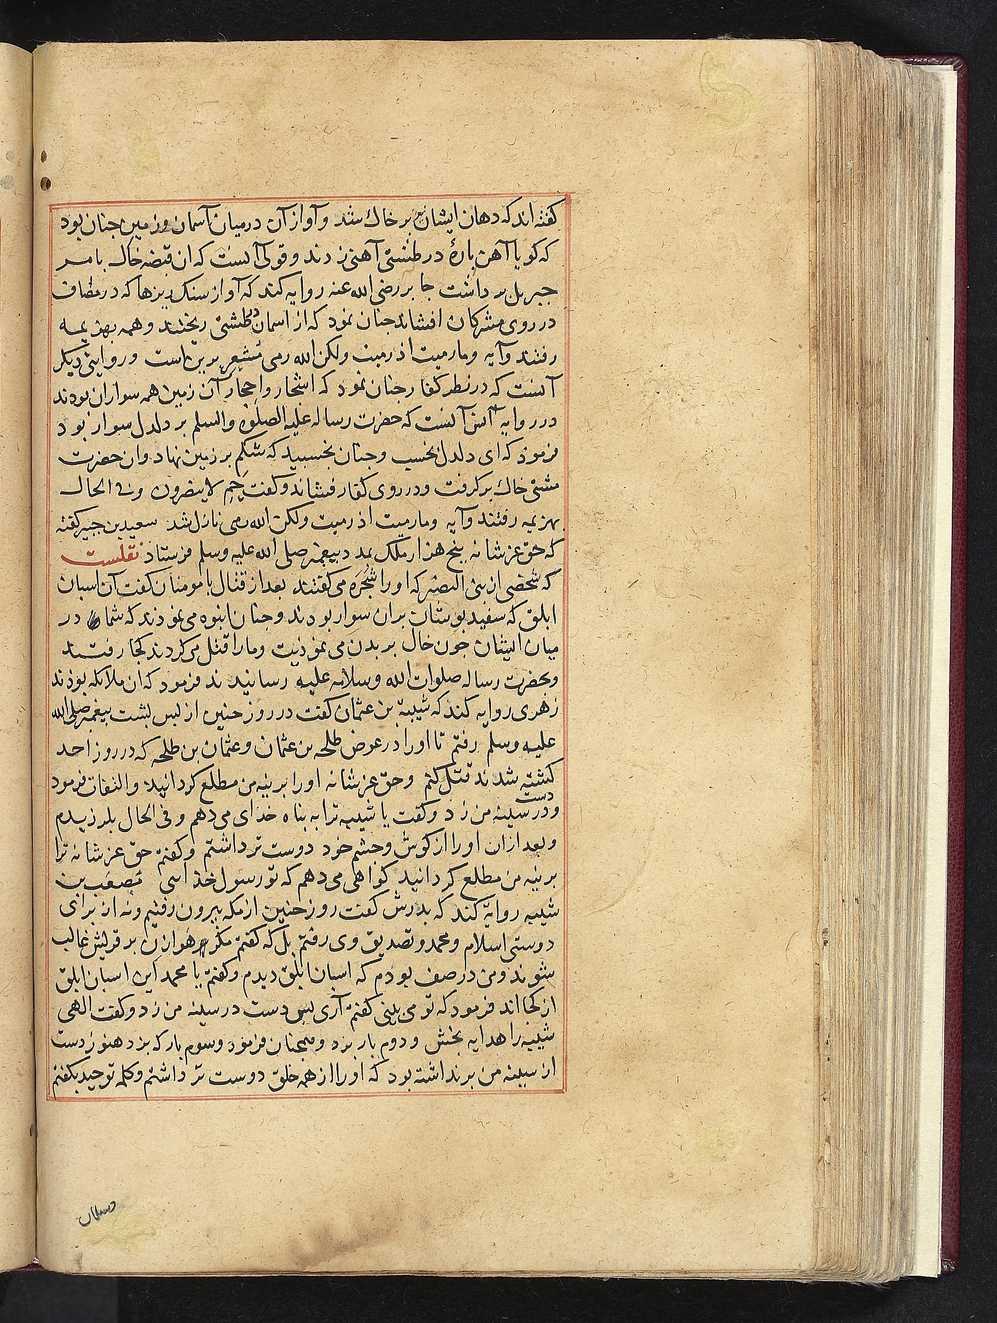 کفته اند که دهان ایشان پر خاک شد و آواز آن درمیان آسمان و زمین چنان بود
که کویا آهن پارهٔ در طشتی آهنی زدند و قولی آنست که ان قبضه خاک بامر
جبریل برداشت جابر رضی الله عنه روایه کند که آواز سنک ریزها که در مصاف
در روی مشرکان افشاند چنان نمود که از اسمان در طشتی ریختند و همه بهزیمه
رفتند و آیه وما رمیت اذ رمیت ولکن الله رمی مشعر برین است و روایتی دیکر
آنست که در نظر کفار چنان نمود که اشجار و احجار آن زمین همه سواران بودند
در روایه آنس آنست که حضرت رساله علیه الصلوه والسلم بر دلدل سوار بود
فرمود که ای دلدل بخسب و چنان بخسبید که شکم بر زمین نهاد و ان حضرت
مشتی خاک بر کرفت و در روی کفار فشاند و کفت حم لا ینصرون و فی الحال
بهزیمه رفتند و آیه وما رمیت اذ رمیت ولکن الله رمی نازل شد سعید بن جبیر کفته
که حق عز شانه پنج هزار ملک بمدد پیغمبر صلی الله علیه وسلم فرستاد نقلست
که شخصی از بنی النضر که او را شجره می کفتند بعد از قتال با مومنان کفت آن اسبان
ابلق که سفید پوشان بران سوار بودند و چنان انبوه می نمودند که شما در
میان ایشان چون خال بر بدن می نمودیت و ما را قتل می کردند کجا رفتند
و بحضرت رساله صلوات الله وسلامه علیه رسانیدند فرمود که ان ملائکه بودند
زهری روایه کند که شیبة بن عثمان کفت در روز حنین از پس پشت پیغمبر صلی الله
علیه وسلم رفتم تا او را در عوض طلحه بن عثمان و عثمان بن طلحه که در روز احد
کشته شدند قتل کنم و حق عز شانه او را بر نیه من مطلع کردانید والتفات فرمود
و دست در سینه من زد و کفت یا شیبه ترا به پناه خدای می دهم و فی الحال بلرزیدم
و بعد ازان او را از کوش و چشم خود دوست تر داشتم و کفتم حق عز شانه ترا
بر نیه من مطلع کردانید کواهی می دهم که تو رسول خدایی مصعب بن
شیبه روایه کند که پدرش کفت روز حنین از مکه بیرون رفتیم و نه از برای
دوستی اسلام و محمد و تصدیق وی رفتم بل که کفتم مکر هوازن بر قریش غالب
شوند و من در صف بودم که اسبان ابلق دیدم و کفتم یا محمد این اسبان ابلق
از کجا اند فرمود که تو می بینی کفتم آری پس دست در سینه من زد و کفت الهی
شیبه را هدایه بخش و دوم بار بزد و همچنان فرمود و سوم بار که بزد هنوز دست
از سینه من برنداشته بود که او را از همه خلق دوست تر داشتم و کلمه توحید بکفتم